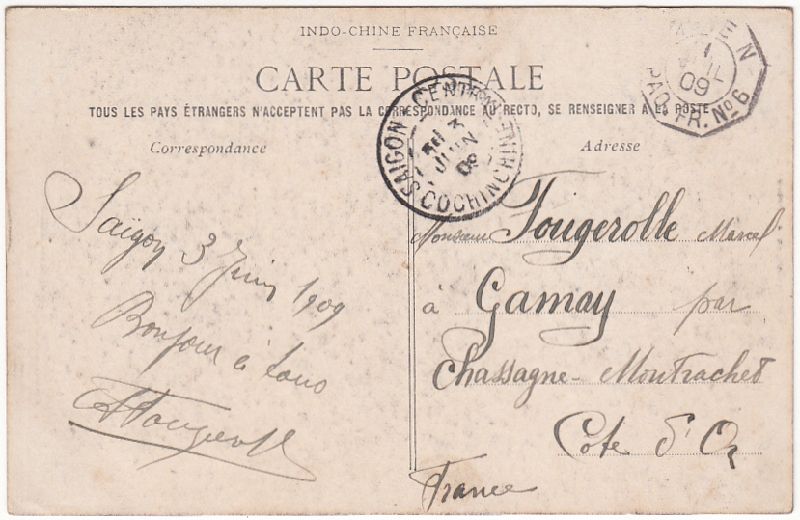 INDO-CHINE FRANÇAISE
CARTE POSTALE
TOUS LES PAYS ÉTRANGERS N'ACCEPTENT PAS LA CORRESPONDANCE AU RECTO, SE RENSEIGNER A LA POSTE
Correspondance
Adresse
SAIGON-CENTRAL
3
JUIN
09
COCHINCHINE
N
09
PAQ. FR. No 6
Saigon 3 Juin 1909
Bonjour à tous
Monsieur Fougerolle Marcel
à Gamay par
Chassagne-Montrachet
Cote d'Or
France